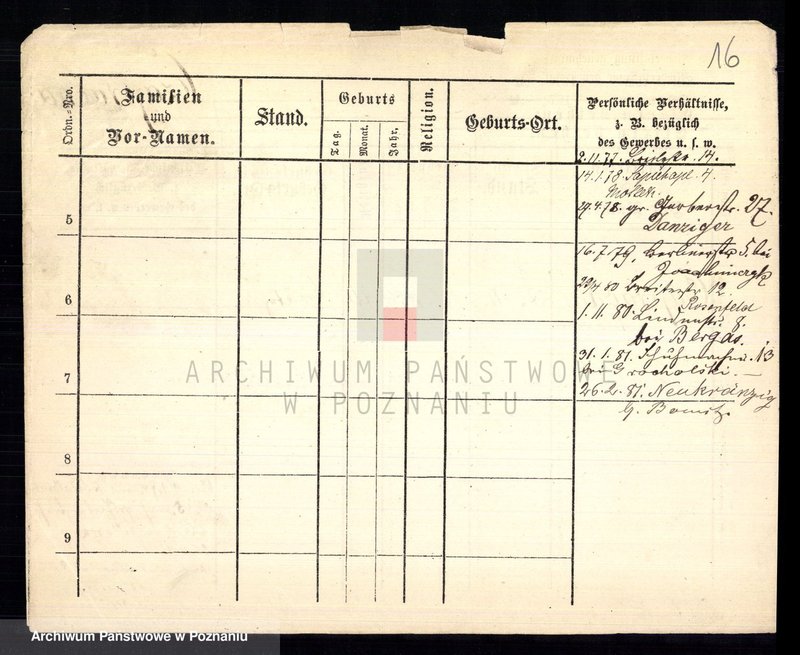 16
Ordn.-Nro.
Familien
und
Vor-Namen.
Stand.
Geburts
Tag.
Monat.
Jahr.
Religion.
Geburts-Ort.
Persönliche Verhältnisse,
z. B. bezüglich
des Gewerbes u. s. w.
2.11.77. 14.
14.1.78 4.
29.4.78. gr. Gerberstr. 27.
Danziger
16.7.79, Berlinerstr 5. bei
80 Breitestr 12.
Rosenfeld
1.11.80. Lindenstr.
bei Bergas.
31.1.81. Schuhmacherstr. 13
bei Grocholski. —
26.2.81. Neukränzig
5
6
7
8
9
ARCHIWUM PAŃSTWOWE
W POZNANIU
Archiwum Państwowe w Poznaniu